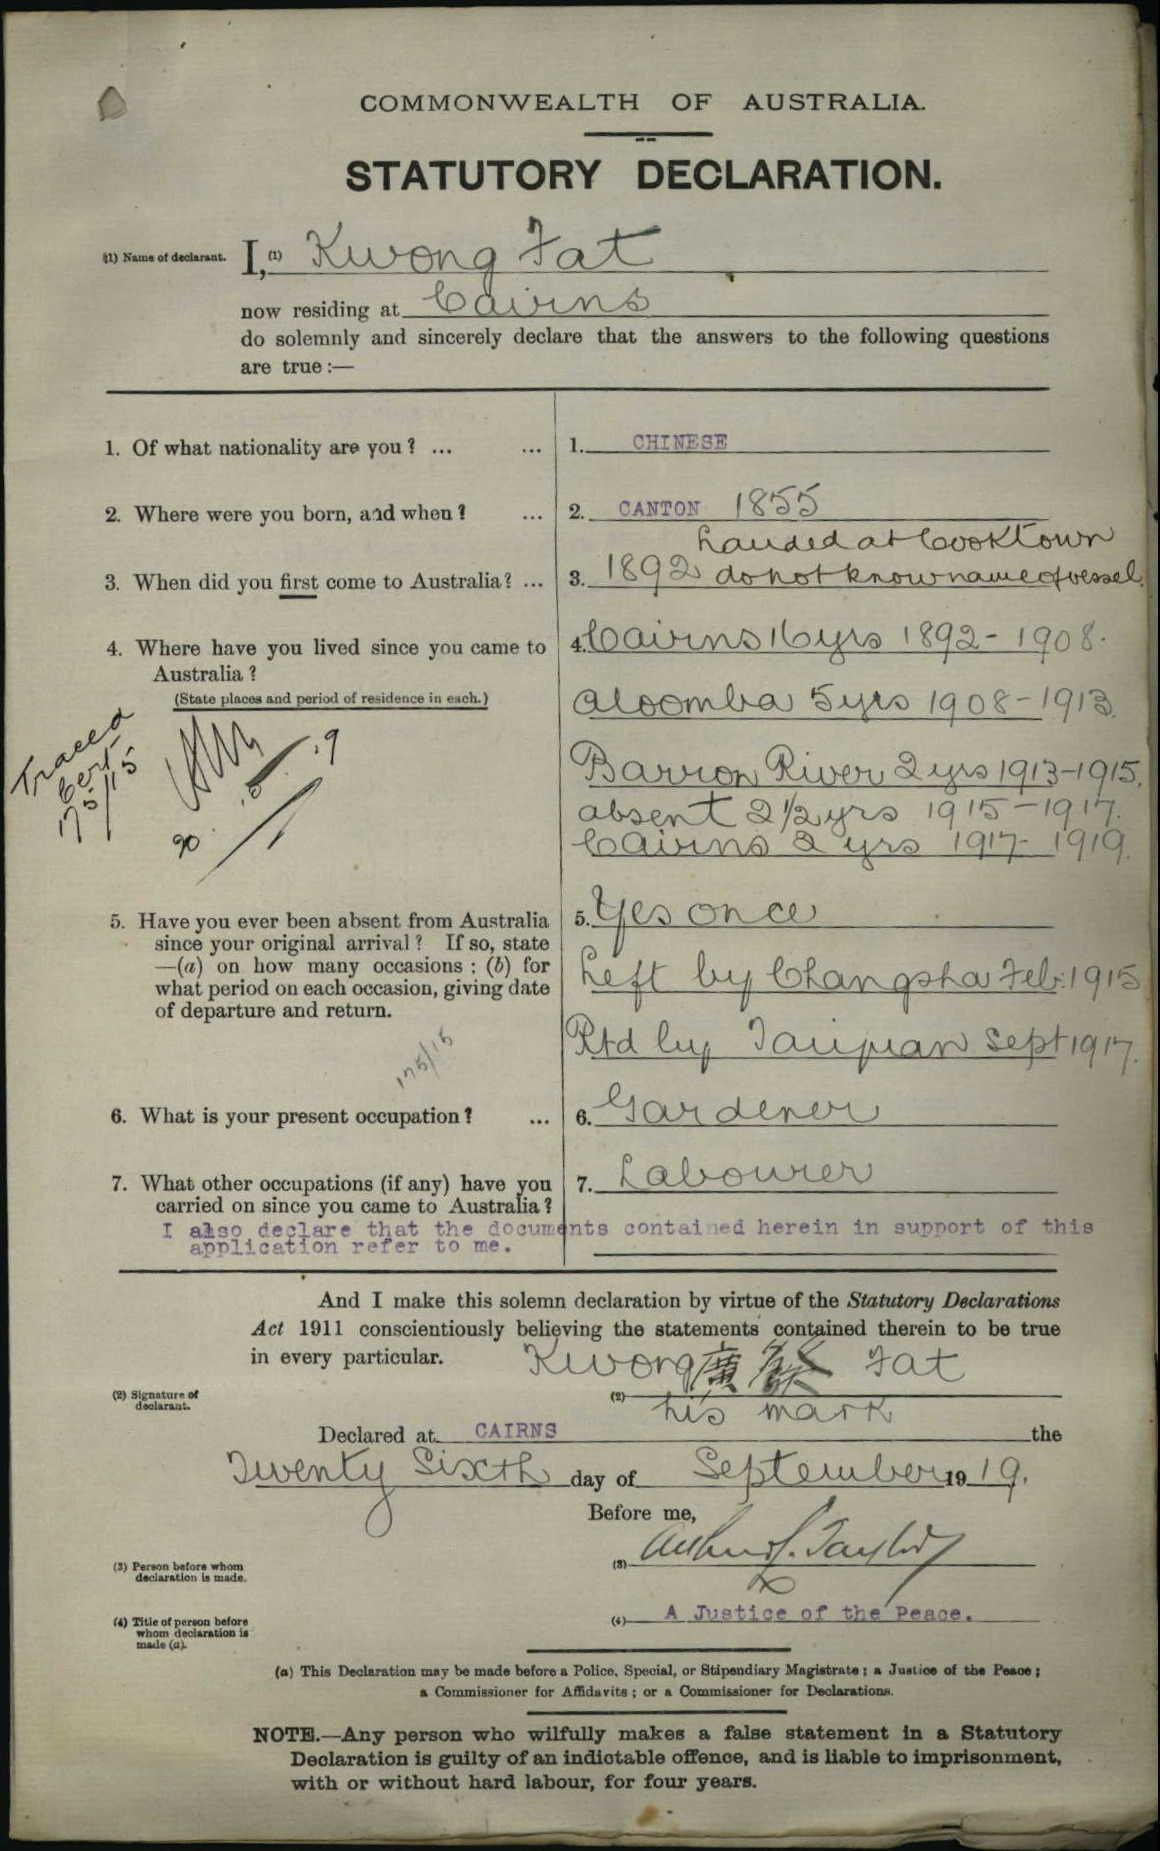 COMMONWEALTH OF AUSTRALIA.
STATUTORY DECLARATION.
(1) Name of declarant. I, (1) Kwong Fat
now residing at Cairns
do solemnly and sincerely declare that the answers to the following questions
are true :—
1. Of what nationality are you ? ... ... 1. CHINESE
2. Where were you born, and when ? ... 2. CANTON 1855
Landed at Cooktown
3. When did you first come to Australia? ... 3. 1892 do not know name of vessel.
4. Where have you lived since you came to 4. Cairns 16 yrs 1892 - 1908.
Australia ?
(State places and period of residence in each.) Aloomba 5 yrs 1908 - 1913.
Traced
Cert
175/15
19
20
Barron River 2 yrs 1913-1915.
absent 2 1/2 yrs 1915 - 1917.
Cairns 2 yrs 1917- 1919.
5. Have you ever been absent from Australia 5. Yes once
since your original arrival ? If so, state
—(a) on how many occasions ; (b) for
what period on each occasion, giving date
of departure and return.
Left by Changsha Feb. 1915
Rtd by Taiyuan Sept 1917.
175/15
6. What is your present occupation ? ... 6. Gardener
7. What other occupations (if any) have you 7. Labourer
carried on since you came to Australia ?
I also declare that the documents contained herein in support of this
application refer to me.
And I make this solemn declaration by virtue of the Statutory Declarations
Act 1911 conscientiously believing the statements contained therein to be true
in every particular.
Kwong 廣 Fat
(2) Signature of
declarant.
(2)
his mark
Declared at CAIRNS the
Twenty Sixth day of September 1919.
Before me,
(3) Person before whom
declaration is made.
(3) Arthur J. Taylor
(4) Title of person before
whom declaration is
made (a).
(4) A Justice of the Peace.
(a) This Declaration may be made before a Police, Special, or Stipendiary Magistrate ; a Justice of the Peace ;
a Commissioner for Affidavits ; or a Commissioner for Declarations.
NOTE.—Any person who wilfully makes a false statement in a Statutory
Declaration is guilty of an indictable offence, and is liable to imprisonment,
with or without hard labour, for four years.